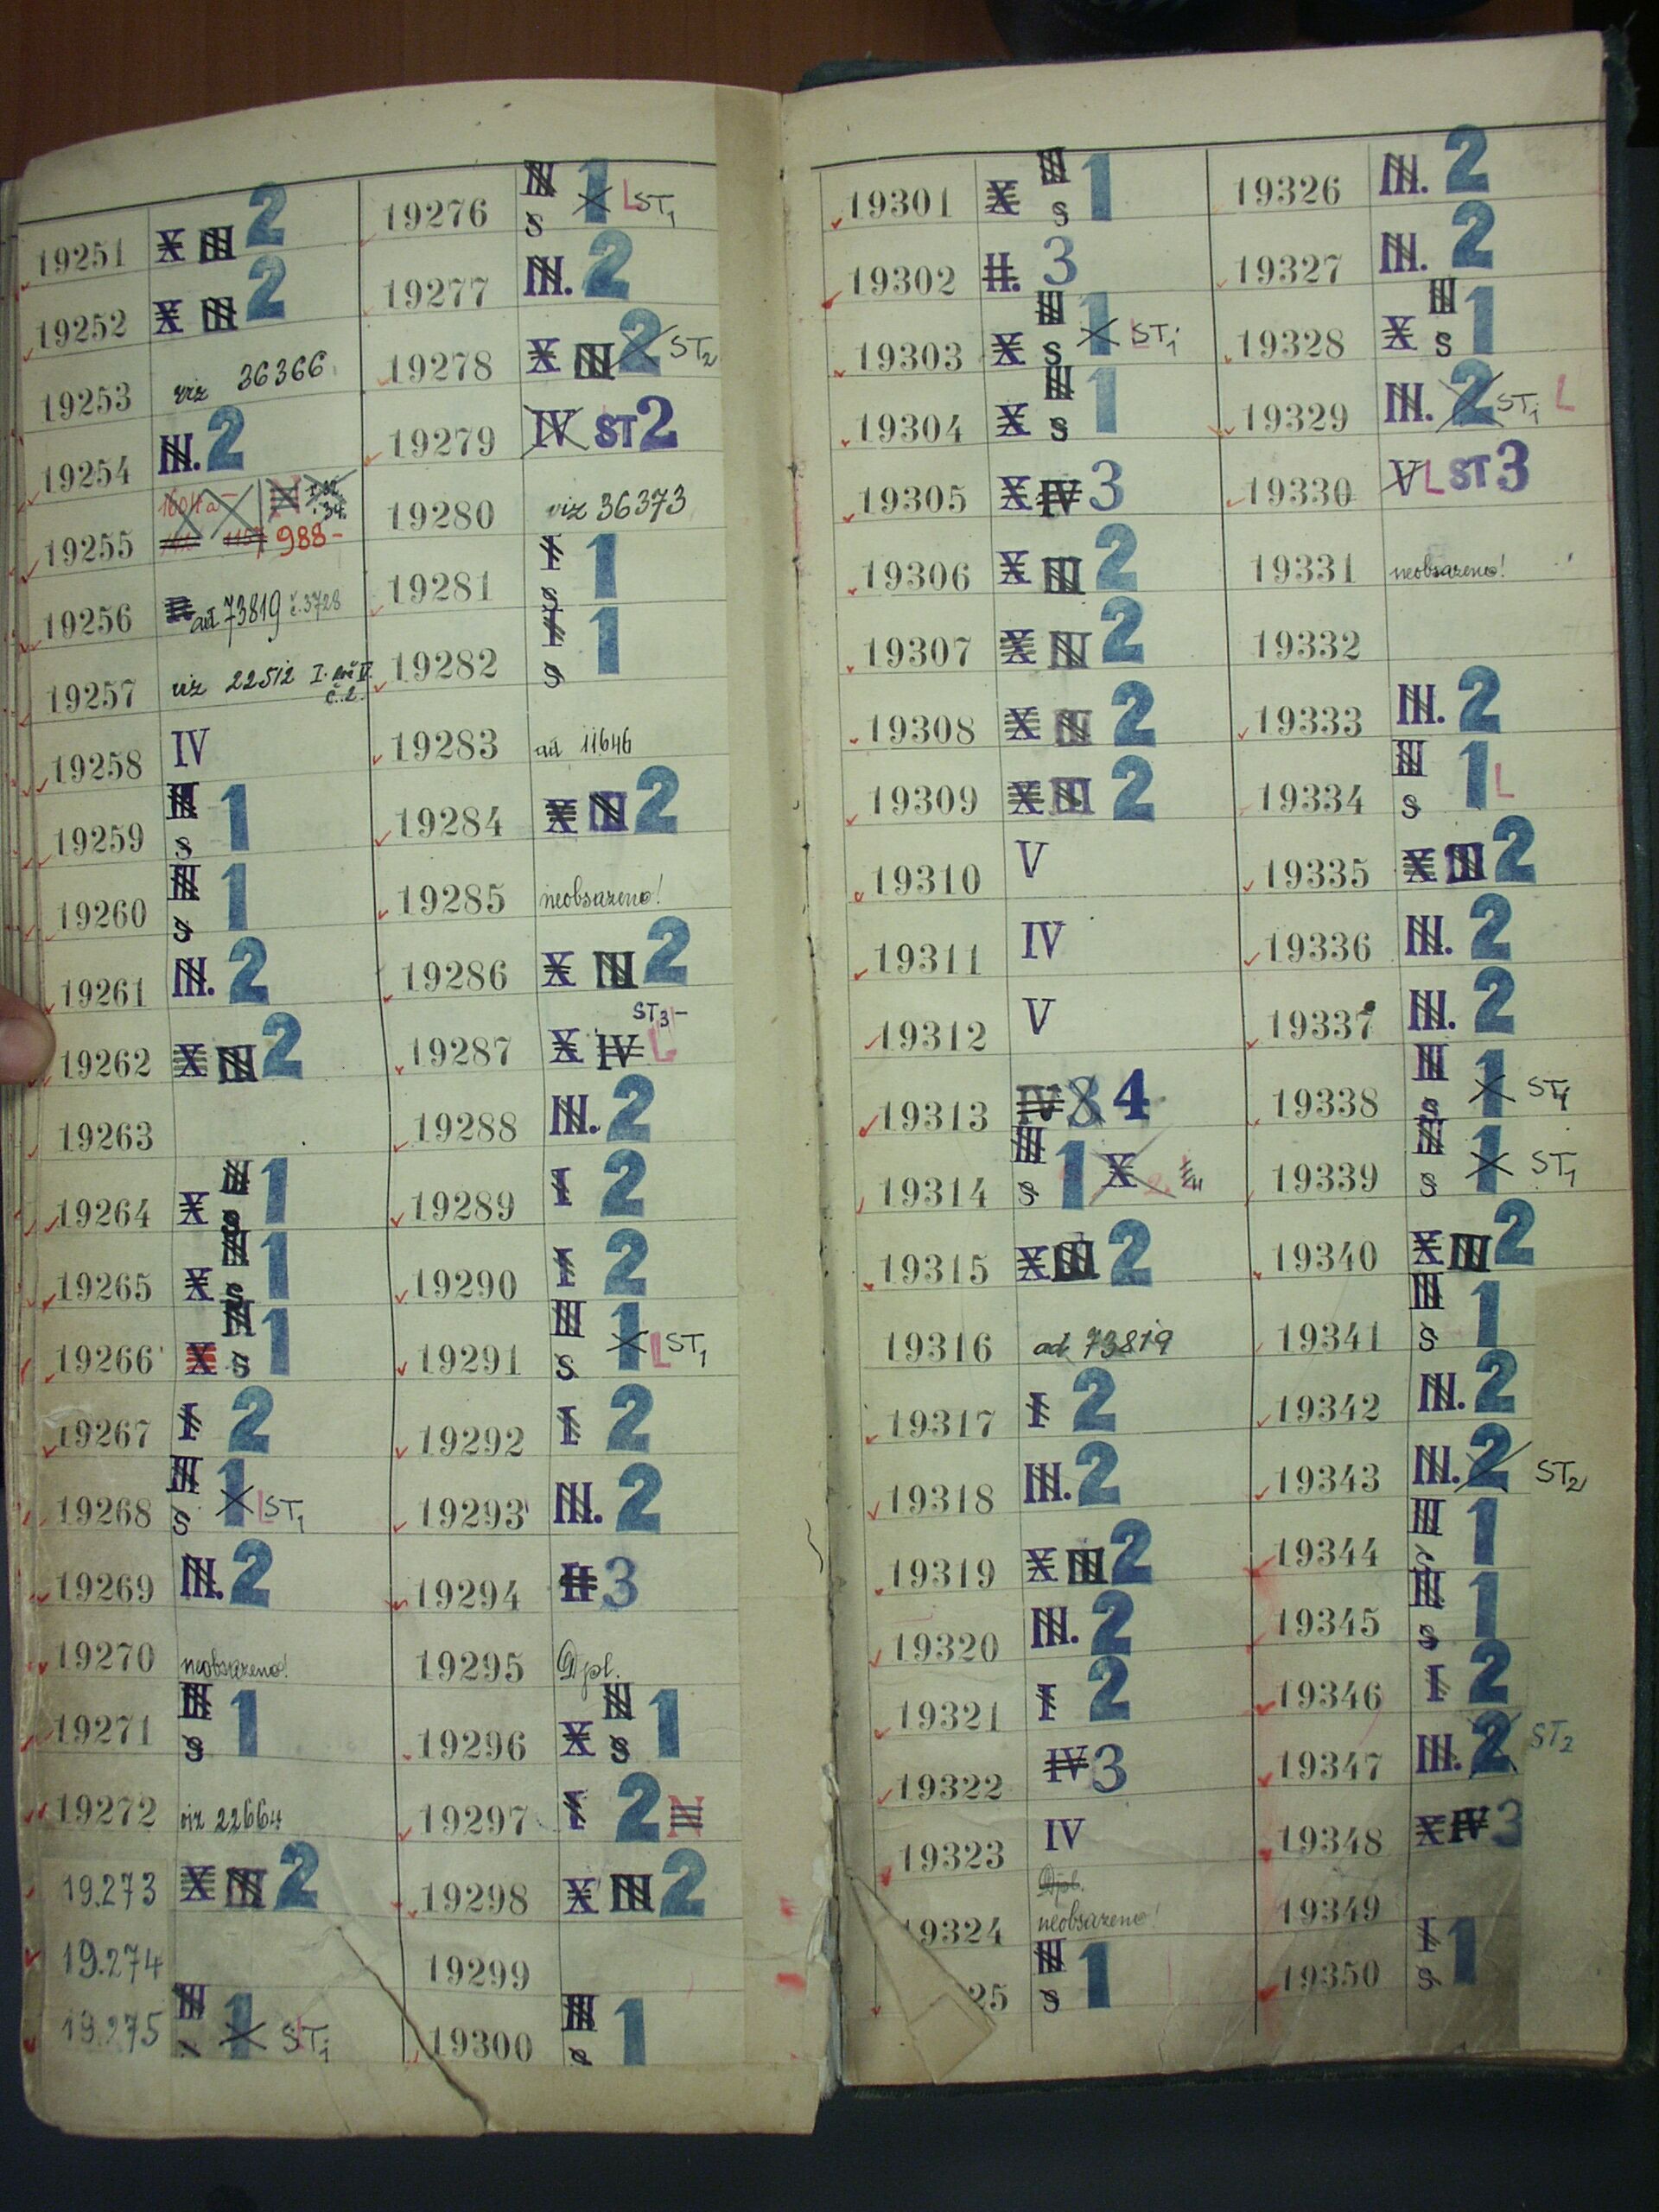 19251 X III 2
19252 X III 2
19253 viz 36366
19254 III. 2
19255 988-
19256 ad 73819 č.3728
19257 viz 22512 I. č.2.
19258 IV
19259 III s 1
19260 III s 1
19261 III. 2
19262 X III 2
19263
19264 X III s 1
19265 X III s 1
19266 X III s 1
19267 I 2
19268 III s 1 L ST1
19269 III. 2
19270 neobsazeno!
19271 III s 1
19272 viz 22664
19.273 X III 2
19.274
19.275 III 1 ST1
19276 III s 1 L ST1
19277 III. 2
19278 X III 2 ST2
19279 IV ST 2
19280 viz 36373
19281 I s 1
19282 I s 1
19283 ad 11646
19284 X III 2
19285 neobsazeno!
19286 X III 2
19287 X IV L ST3-
19288 III. 2
19289 I 2
19290 I 2
19291 III s 1 L ST1
19292 I 2
19293 III. 2
19294 II 3
19295 Dpl.
19296 X III s 1
19297 I 2 N
19298 X III 2
19299
19300 III s 1
19301 X III s 1
19302 II. 3
19303 X III s 1 ST1
19304 X III s 1
19305 X IV 3
19306 X III 2
19307 X III 2
19308 X III 2
19309 X III 2
19310 V
19311 IV
19312 V
19313 IV 3 4
19314 III s 1 X
19315 X III 2
19316 ad 73819
19317 I 2
19318 III. 2
19319 X III 2
19320 III. 2
19321 I 2
19322 IV 3
19323 IV
Dpl.
19324 neobsazeno!
25 III s 1
19326 III. 2
19327 III. 2
19328 X III s 1
19329 III. 2 ST1 L
19330 V L ST 3
19331 neobsazeno!
19332
19333 III. 2
19334 III s 1 L
19335 X III 2
19336 III. 2
19337 III. 2
19338 III s 1 ST1
19339 III s 1 ST1
19340 X III 2
19341 III s 1
19342 III. 2
19343 III. 2 ST2
19344 III s 1
19345 III s 1
19346 I 2
19347 III. 2 ST2
19348 X IV 3
19349
19350 I s 1